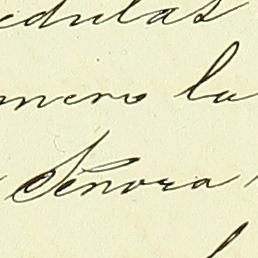 edulas
mero la
Señora